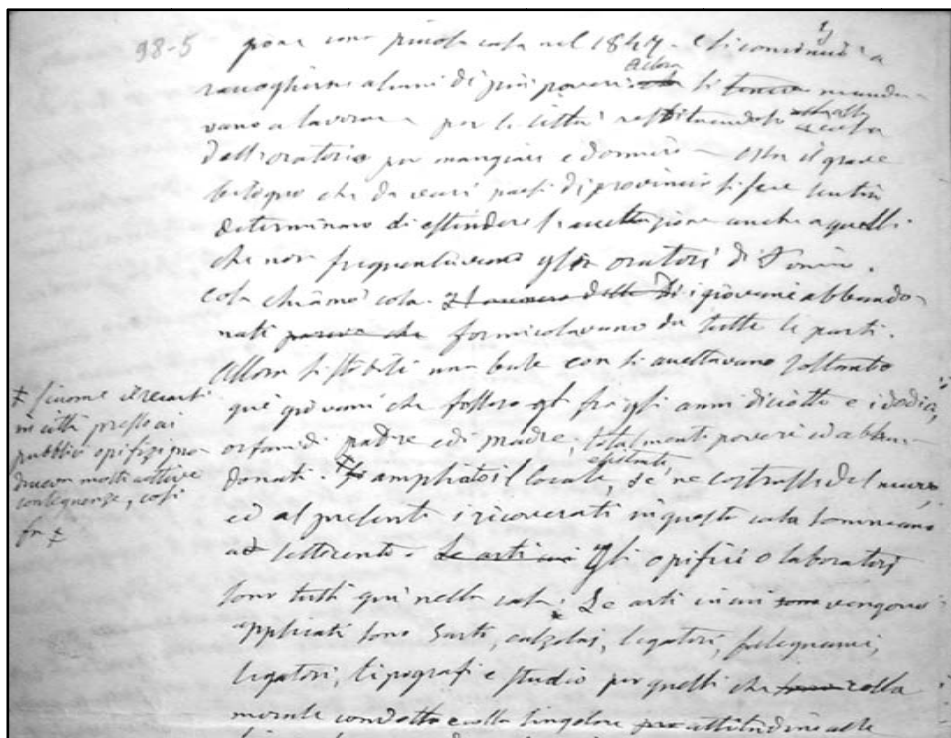 98-5
casa nel 1847. e si cominciò a
raccogliere alcuni di più poveri. Allora si mandavano
a lavorare per la città
dell'oratorio per mangiare e dormire. Ma il grave
bisogno che da vari paesi di provincia si fece sentire
di estendere l'accettazione anche a quelli
che non frequentavano gli oratori di Torino.
Cosa chiamò cosa. i giovani abbando-
nati formicolavano da tutte le parti.
Allora si stabilì una base con si accettavano soltanto
que' giovani che fossero fra gli anni diciotto e i dodici,
orfani di padre e di madre, totalmente poveri ed abban-
donati. ampliato il locale esistente, se ne costrusse del nuovo,
ed al presente i ricoverati in questa casa sommano
ad settecento. Le arti cui Gli opifici o laboratori
sono tutti qui nella casa. Le arti in cui sono vengono
applicati sono Sarti, calzolai, legatori, falegnami,
legatori, tipografi e studio per quelli che colla
morale condotta e colla singolare attitudine alle
# Siccome il recarsi
in città presso ai
pubblici opifizi pro-
duceva molte cattive
conseguenze, così
fu #